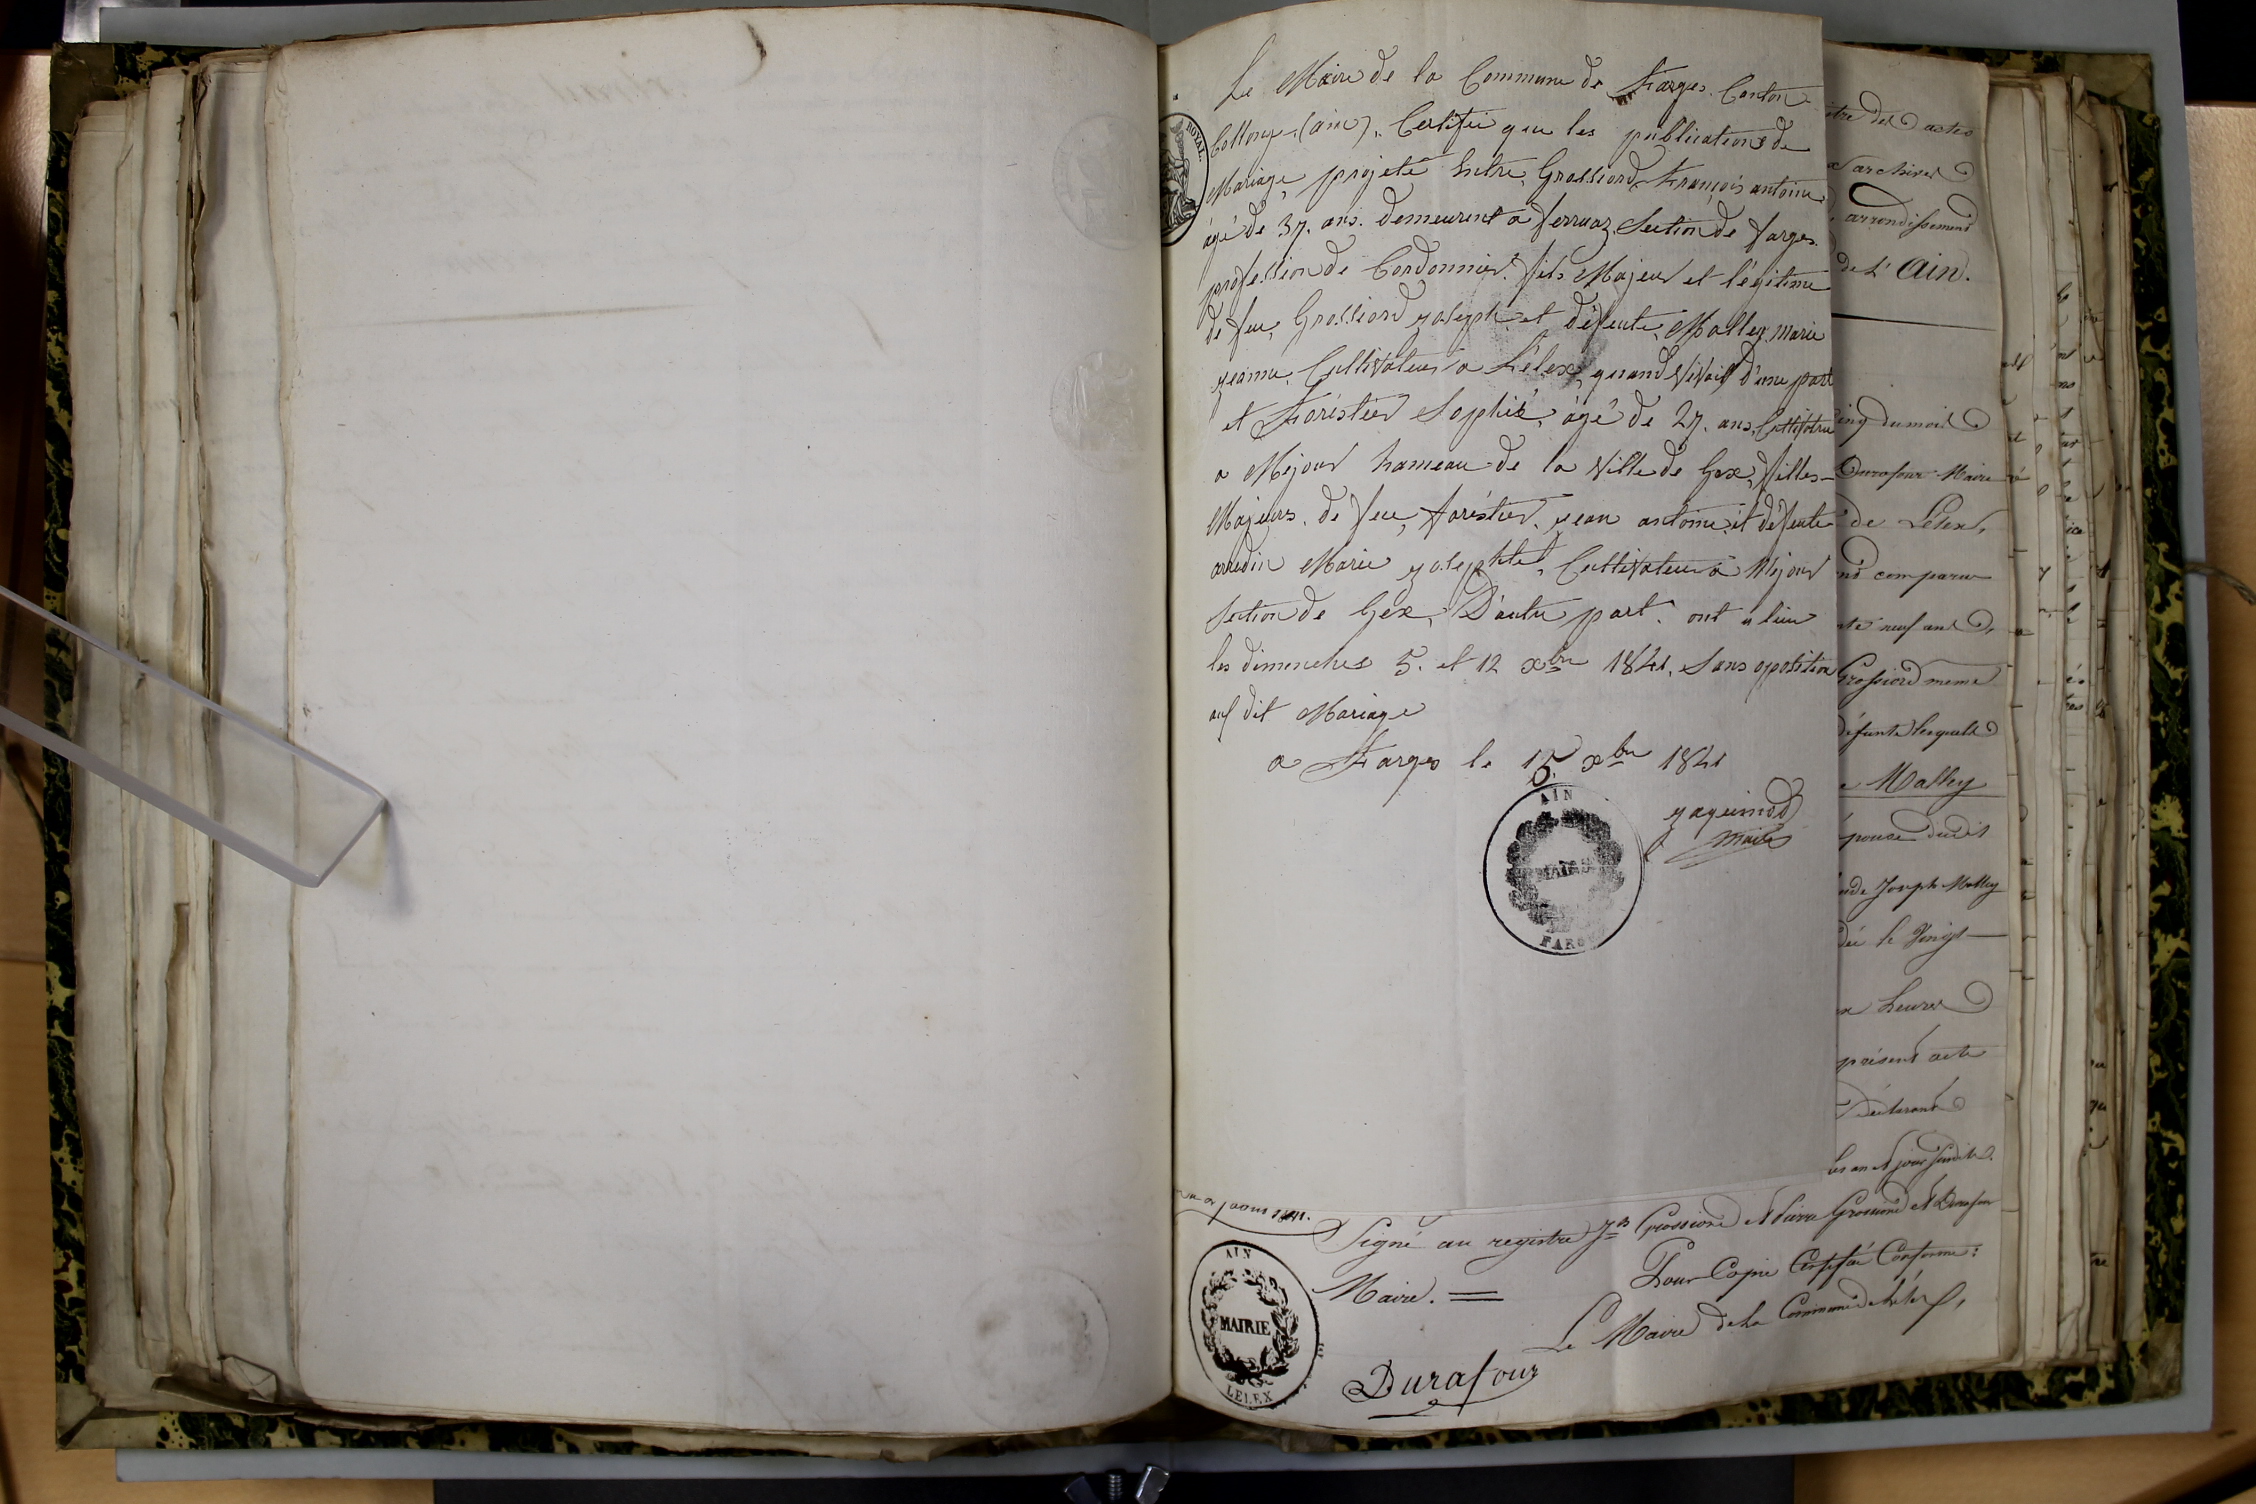 Le Maire de la Commune de Farges. Canton
Collonge. (ain). Certifie que les publications de
Mariage, projeté Entre, Grossiord, François antoine
âgé de 37. ans. demeurent a ferruaz. Section de farges.
profession de Cordonnier. fils Majeur et légitime
de feu, Grossiord yoseph et défeute, Malley marie
yeanne, Cultivateur a Lélex, quand Vivait d'une part
et Foréstier Sophie, âgé de 27. ans, Cultivatrice
a Méjour hameau de la Ville de Gex, filles
Majeurs. de feu, foréstier. yean antoine et défeute
Marie yosephte, Cultivateur a Mijour
Section de Gex, D'autre part. ont u lieu
les dimenches 5. et 12 xbre 1841. Sans oposition
auf dit Mariage
a Farges le 15 xbre 1841
yaquinod
maire
AIN
MAIRIE
FARGES
ROYAL.
des actes
archives
arrondissement
de L' Ain.
cinq du mois
Durafour Maire
de Lélex,
comparu
neuf ans,
Grossiord meme
défunte lesquels
Malley
épouse dudit
Joseph Malley
le Vingt
heures
présent acte
Déclarant
les an et jour susdits.
1841.
Signé au registre Grossiord et Pierre Grossiord et Durafour
Maire.
Pour Copie Certifié Conforme:
Le Maire de la Commune de Lélex,
Durafour
AIN
MAIRIE
LELEX